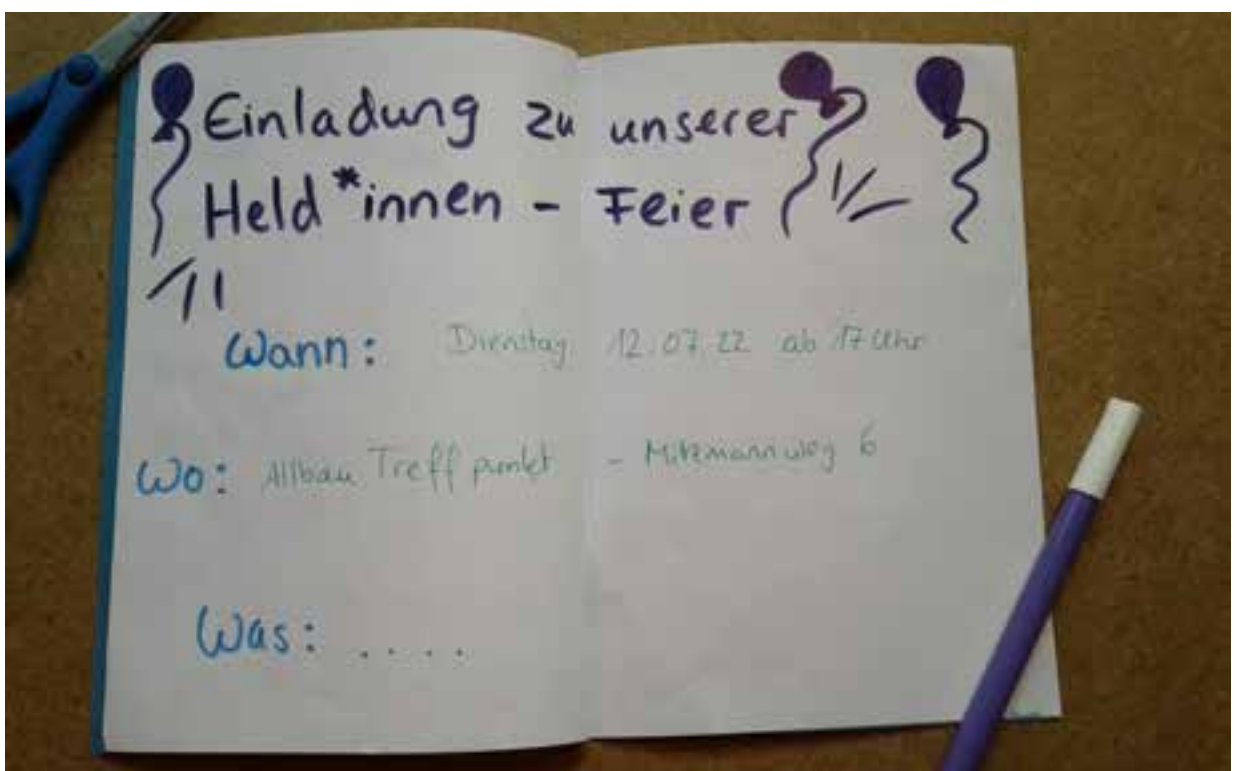 Einladung zu unserer
Held*innen - Feier
Wann: Dienstag 12.07.22 ab 17 Uhr
Wo: Allbau Treffpunkt - 6
Was: ....